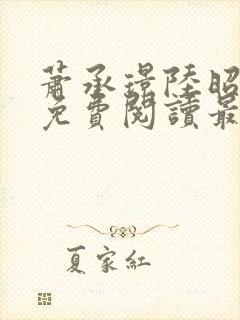 蕭承璟陸昭
免費閱讀最
夏家紅